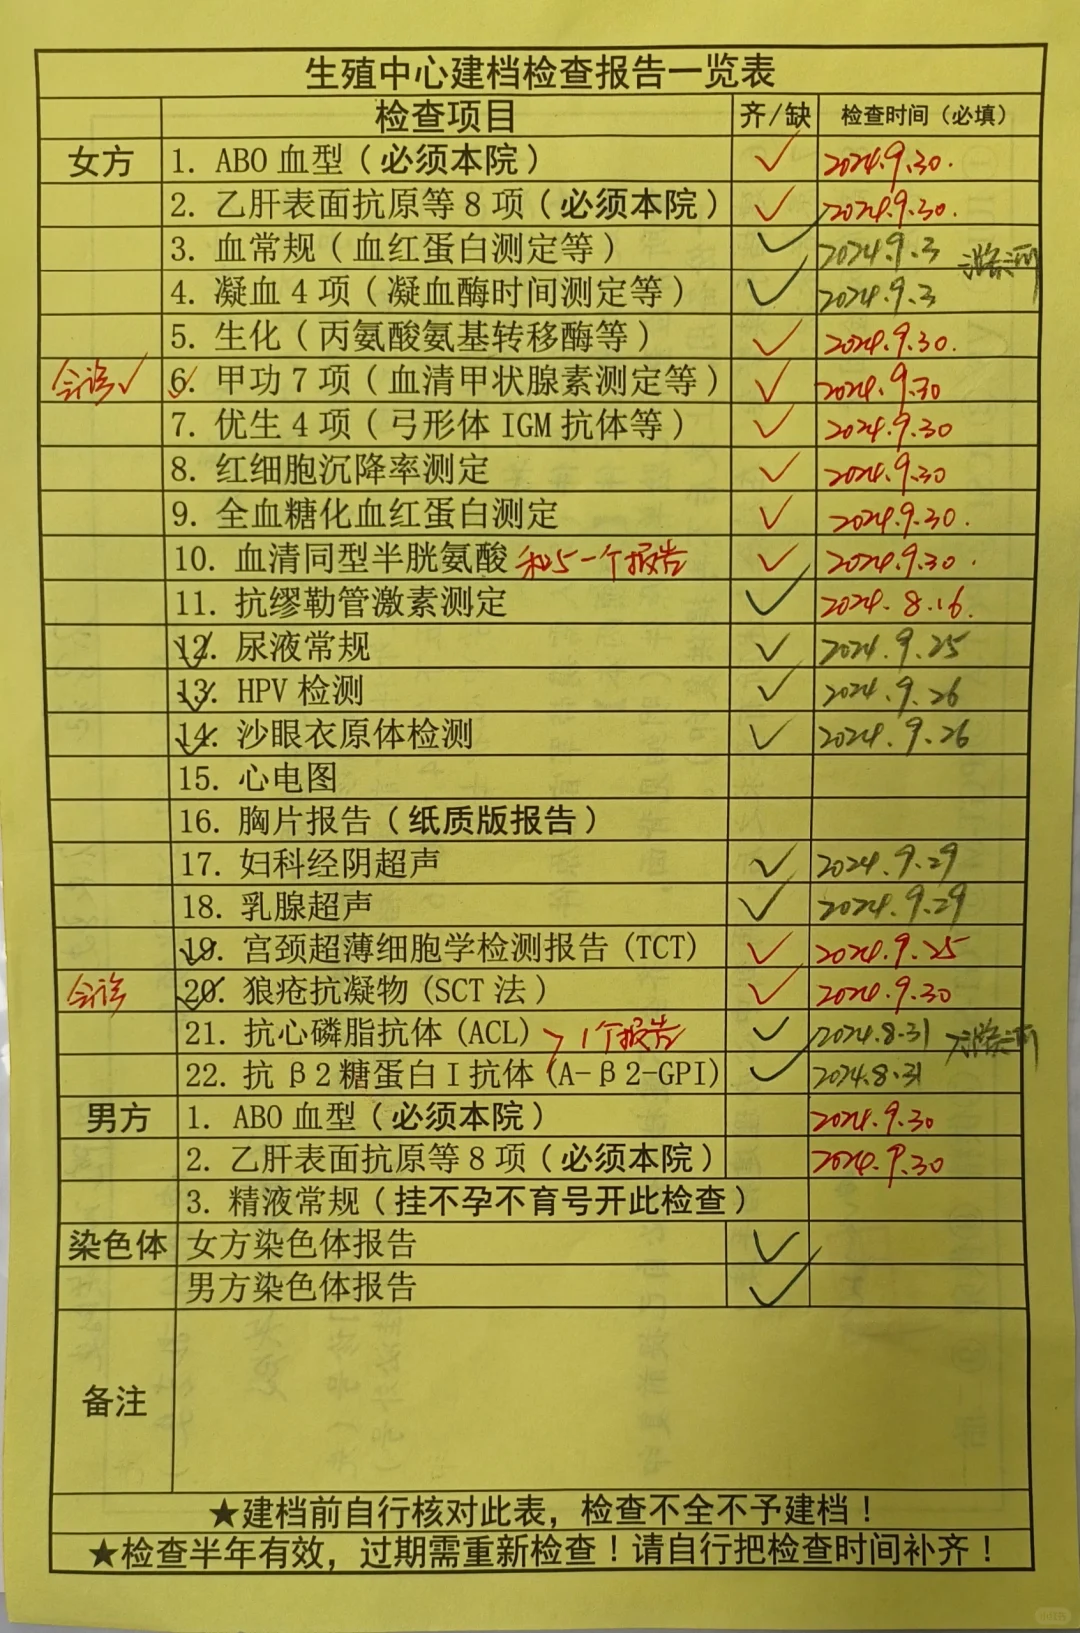 生殖中心建档检查报告一览表
检查项目 齐/缺 检查时间（必填）
女方 1. ABO 血型（必须本院） ✓ 2024.9.30.
2. 乙肝表面抗原等 8 项（必须本院） ✓ 2024.9.30.
3. 血常规（血红蛋白测定等） ✓ 2024.9.3
4. 凝血 4 项（凝血酶时间测定等） ✓ 2024.9.3
5. 生化（丙氨酸氨基转移酶等） ✓ 2024.9.30.
会诊✓ 6. 甲功 7 项（血清甲状腺素测定等） ✓ 2024.9.30
7. 优生 4 项（弓形体 IGM 抗体等） ✓ 2024.9.30
8. 红细胞沉降率测定 ✓ 2024.9.30
9. 全血糖化血红蛋白测定 ✓ 2024.9.30.
10. 血清同型半胱氨酸 和5一个报告 ✓ 2024.9.30.
11. 抗缪勒管激素测定 ✓ 2024.8.16.
12. 尿液常规 ✓ 2024.9.25
13. HPV 检测 ✓ 2024.9.26
14. 沙眼衣原体检测 ✓ 2024.9.26
15. 心电图
16. 胸片报告（纸质版报告）
17. 妇科经阴超声 ✓ 2024.9.29
18. 乳腺超声 ✓ 2024.9.29
19. 宫颈超薄细胞学检测报告 (TCT) ✓ 2024.9.25
会诊 20. 狼疮抗凝物 (SCT 法) ✓ 2024.9.30
21. 抗心磷脂抗体 (ACL) 1个报告 ✓ 2024.8.31
22. 抗 β2 糖蛋白 I 抗体 (A-β2-GPI) ✓ 2024.8.31
男方 1. ABO 血型（必须本院） 2024.9.30
2. 乙肝表面抗原等 8 项（必须本院） 2024.9.30
3. 精液常规（挂不孕不育号开此检查）
染色体 女方染色体报告 ✓
男方染色体报告 ✓
备注
★建档前自行核对此表，检查不全不予建档！
★检查半年有效，过期需重新检查！请自行把检查时间补齐！